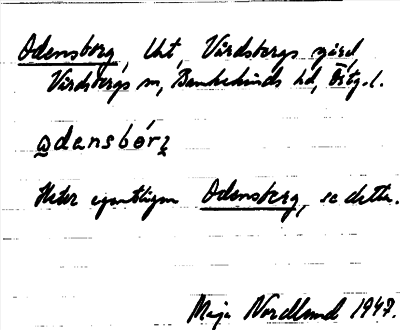 Odensborg, lht, Vårdsbergs gård,
Vårdsbergs sn, Bankekinds hd, Östg. l.
odansbórʒ
Heter egentligen Odensberg, se detta.
Maja Nordlund 1947.